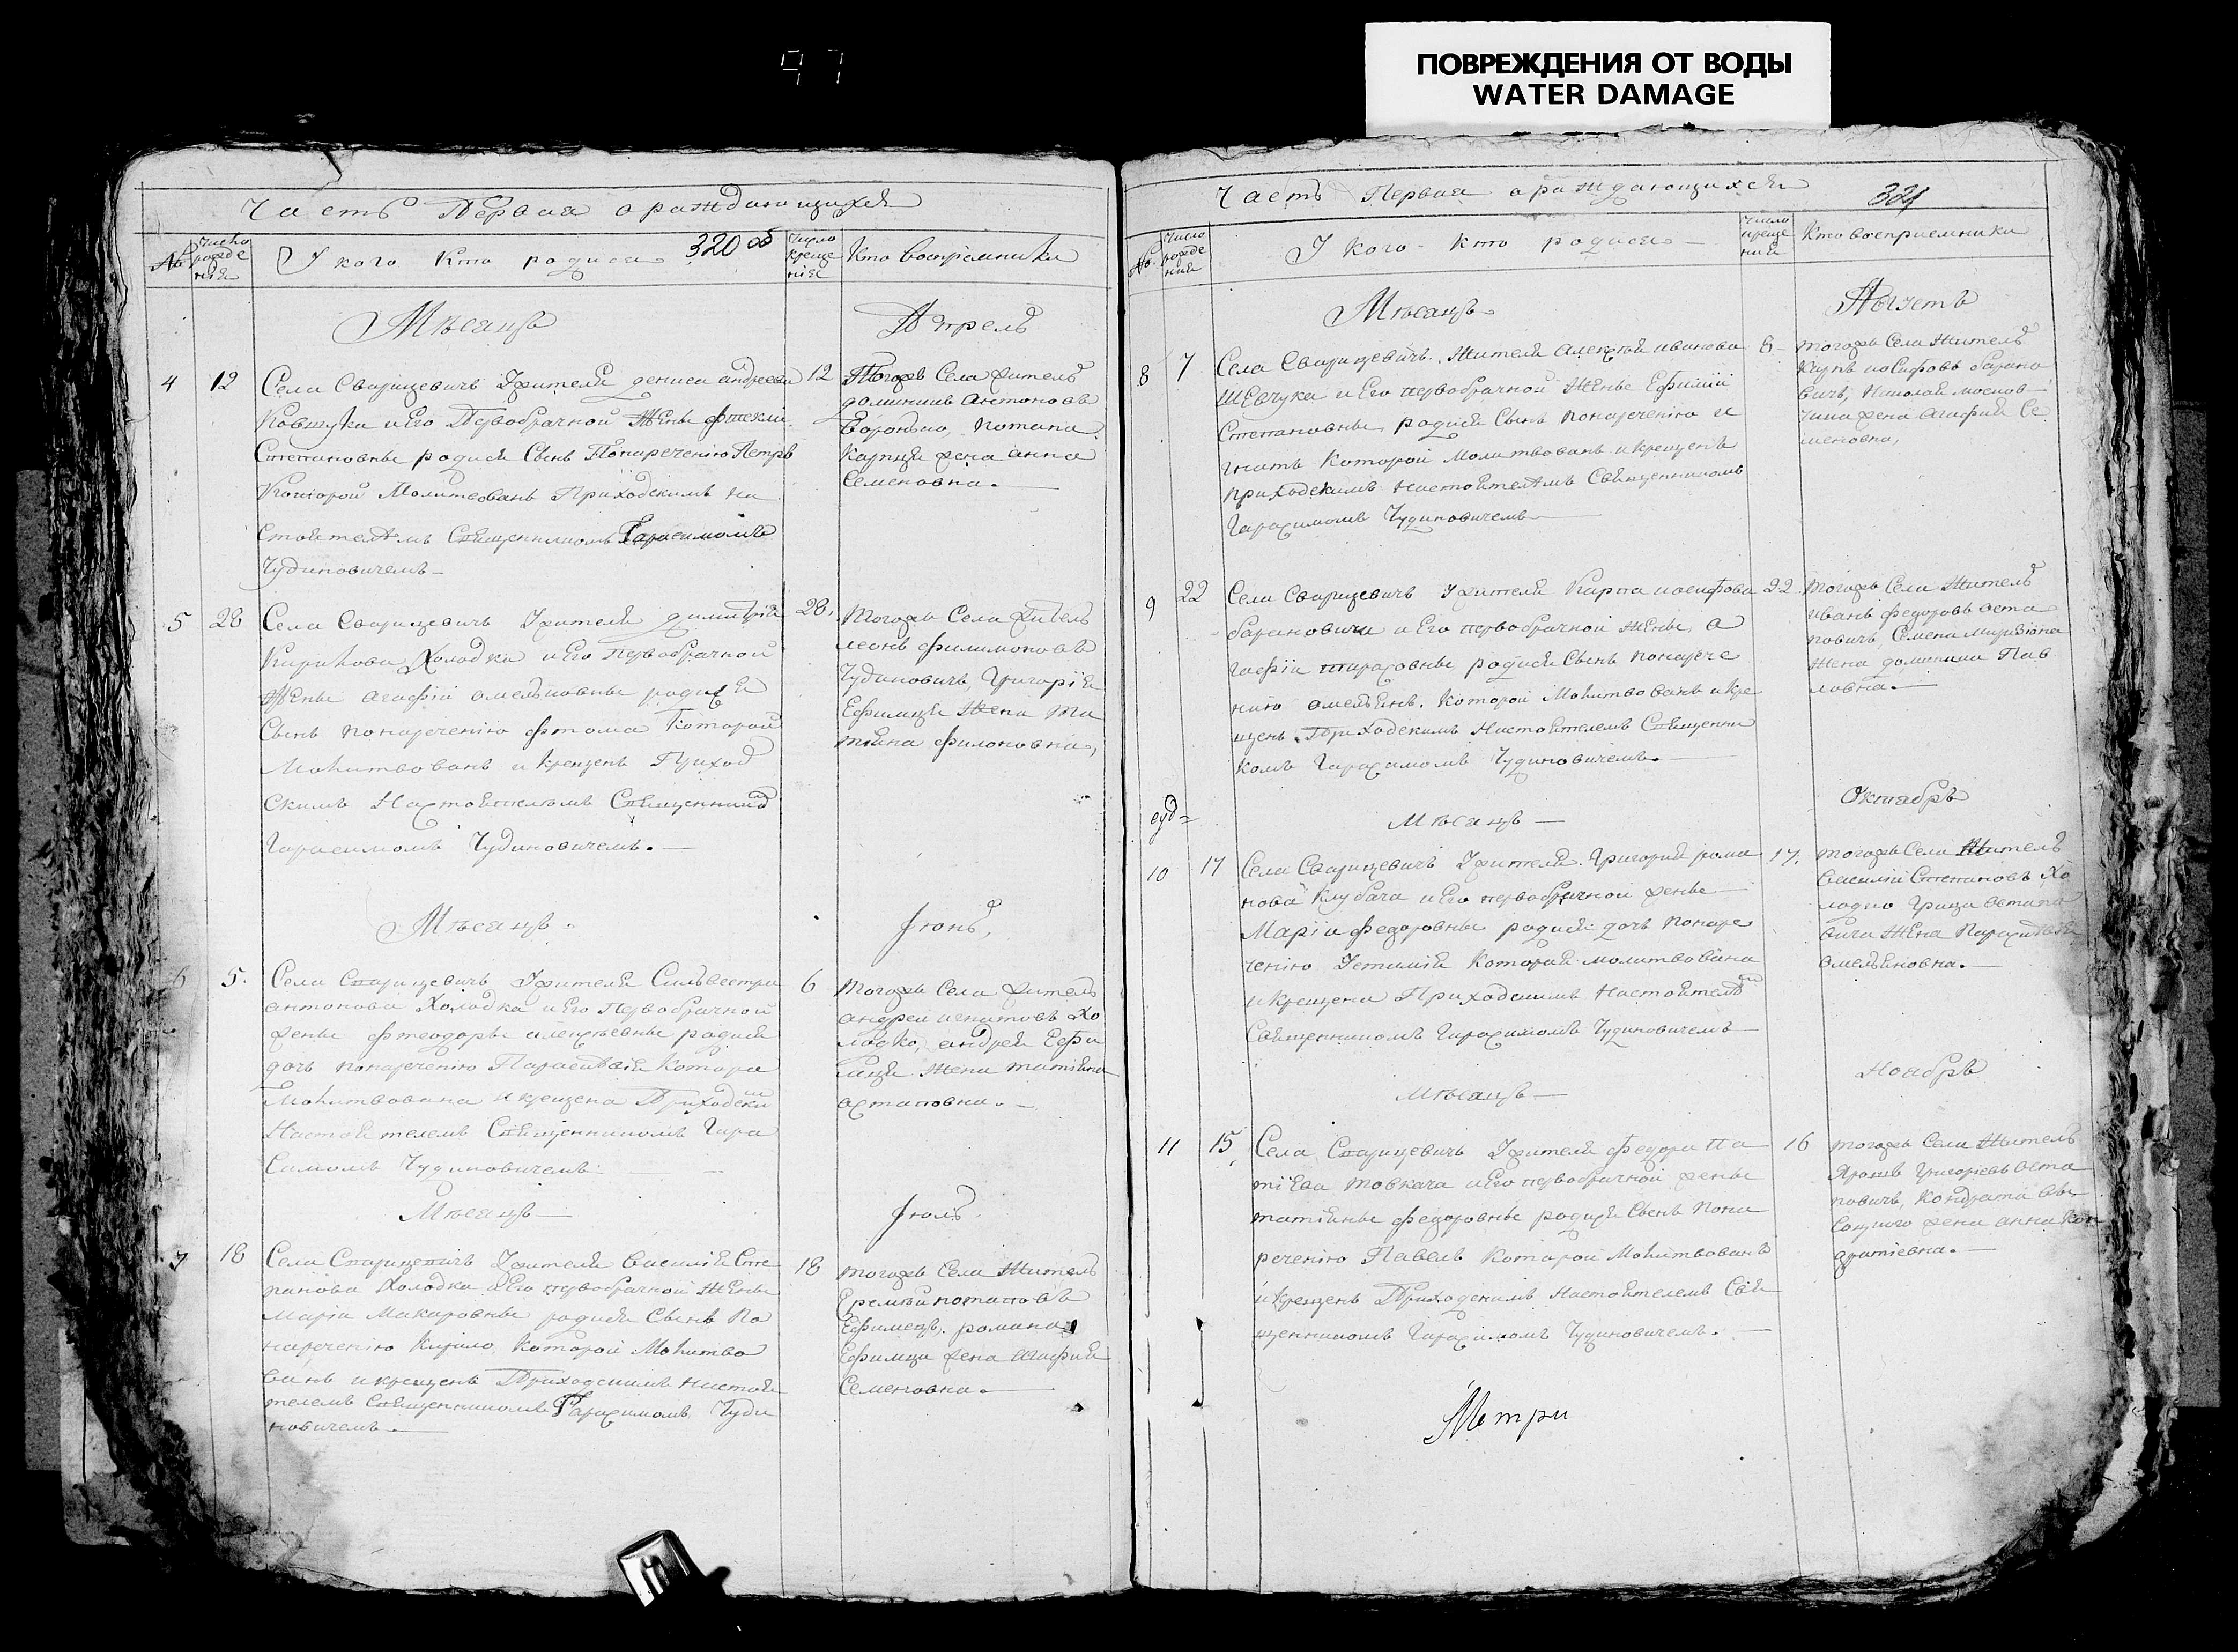 97
ПОВРЕЖДЕНИЯ ОТ ВОДЫ
WATER DAMAGE
Часть Первая о раждающихся
№
Число рожде нія
У кого Кто родися
320 об
Число креще нія
Кто Воспріемники
Мѣсяцъ
Апрель
4
12
Села Сварицевичъ Ужителя дениса андреева
Ковшука и Его Первобрачной Женѣ фтекли
Степановнѣ родися Сынъ Понареченію Петръ
Которой Молитвованъ Приходскимъ На
стоятелѣмъ Священникомъ Гарасимомъ
Чудиновичемъ
12
Тогожъ Села жителъ
доминикъ Антоновъ
Воронько, Потапа
Карпця жена анна
Семеновна.
5
28
Села Сварицевичъ Ужителя димитрія
Кирикова Холодка и Его Первобрачной
Женѣ агафіи омеляновнѣ родися
Сынъ понареченію фтома Которой
Молитвованъ и крещенъ Приход
скимъ Настоятелемъ Священником
Гарасимомъ Чудиновичемъ.
28.
Тогожъ Села житель
леонъ филимоновъ
Чудиновичъ, Григорія
Ефимця Жена та
тіяна филоновна,
Мѣсяцъ
Іюнь,
6
5.
Села Сварицевичъ Ужителя Сильвестра
антонова Холодка и Его Первобрачной
женѣ фтеодорѣ алексѣевнѣ родися
дочь понареченію Параскѣвія Котора
Молитвована и крещена Приходски
Настоятелемъ Священникомъ Гара
Симомъ Чудиновичемъ
6
Тогожъ Села житель
андрей игнатовъ Хо
лодко, андрея Ефи
мця Жена татіяна
астаповна.
Мѣсяцъ
Іюль
7
18
Села Сварицевичъ Ужителя Василія Сте
панова Холодка и Его первобрачной Женѣ
Маріи Макаровнѣ родися Сынъ По
нареченію Кирило, Которой Молитво
ванъ и крещенъ Приходскимъ настоя
телемъ Священникомъ Гарасимомъ Чуди
новичемъ
18
тогожъ Села Житель
Еремѣй потаповъ
Ефимецъ, романа
Ефимця жена агафия
Семеновна.
Часть Первая о раждающихся
321
№.
Число рожде ния
У кого Кто родися
Число креще ния
Кто восприемники
Мѣсяцъ
Августъ
8
7
Села Сварицевичъ Жителя алексѣя иванова
Шевчука и Его первобрачной Женѣ Ефиміи
Степановнѣ, родися Сынъ понареченію и
гнатъ Которой Молитвованъ и крещенъ
приходскимъ настоятелѣмъ Священникомъ
Гарасимомъ Чудиновичемъ
8
тогожъ Села Житель
иосифовъ барано
вичъ, Николая
жена агафия Се
меновна,
9
22
Села Сварицевичъ Ужителя Карпа иосифова
барановича и Его первобрачной Женѣ, а
гафіи тарасовнѣ, родися Сынъ понарече
нию омелянъ. Которой Молитвованъ и кре
щенъ Приходскимъ Настоятелемъ Священни
комъ Гарасимомъ Чудиновичемъ.
22.
тогожъ Села Житель
иванъ федоровъ оста
повичъ, Семена
Жена домникия Пав
ловна.
Мѣсяцъ
Октябрь
10
17
Села Сварицевичъ Ужителя Григорія рома
нова Клубача и Его первобрачной женѣ
Маріи федоровнѣ родися дочь понаре
ченію Устимія Которая молитвована
и крещена Приходскимъ Настоятелем
Священникомъ Гарасимомъ Чудиновичемъ
17.
тогожъ Села Житель
Василій Степановъ Хо
лодко Грица остапо
вича Жена
омеляновна.
Мѣсяцъ
Ноябрь
11
15
Села Сварицевичъ Ужителя федора Па
тіева товкача и Его первобрачной женѣ
татіянѣ федоровнѣ родися Сынъ пона
реченію Павелъ Которой Молитвованъ
и крещенъ Приходскимъ настоятелемъ Свя
щенникомъ Гарасимомъ Чудиновичемъ.
16
тогожъ Села Житель
Григоріевъ оста
повичъ, Кондрата
жена анна Кон
дратіевна.
Метри